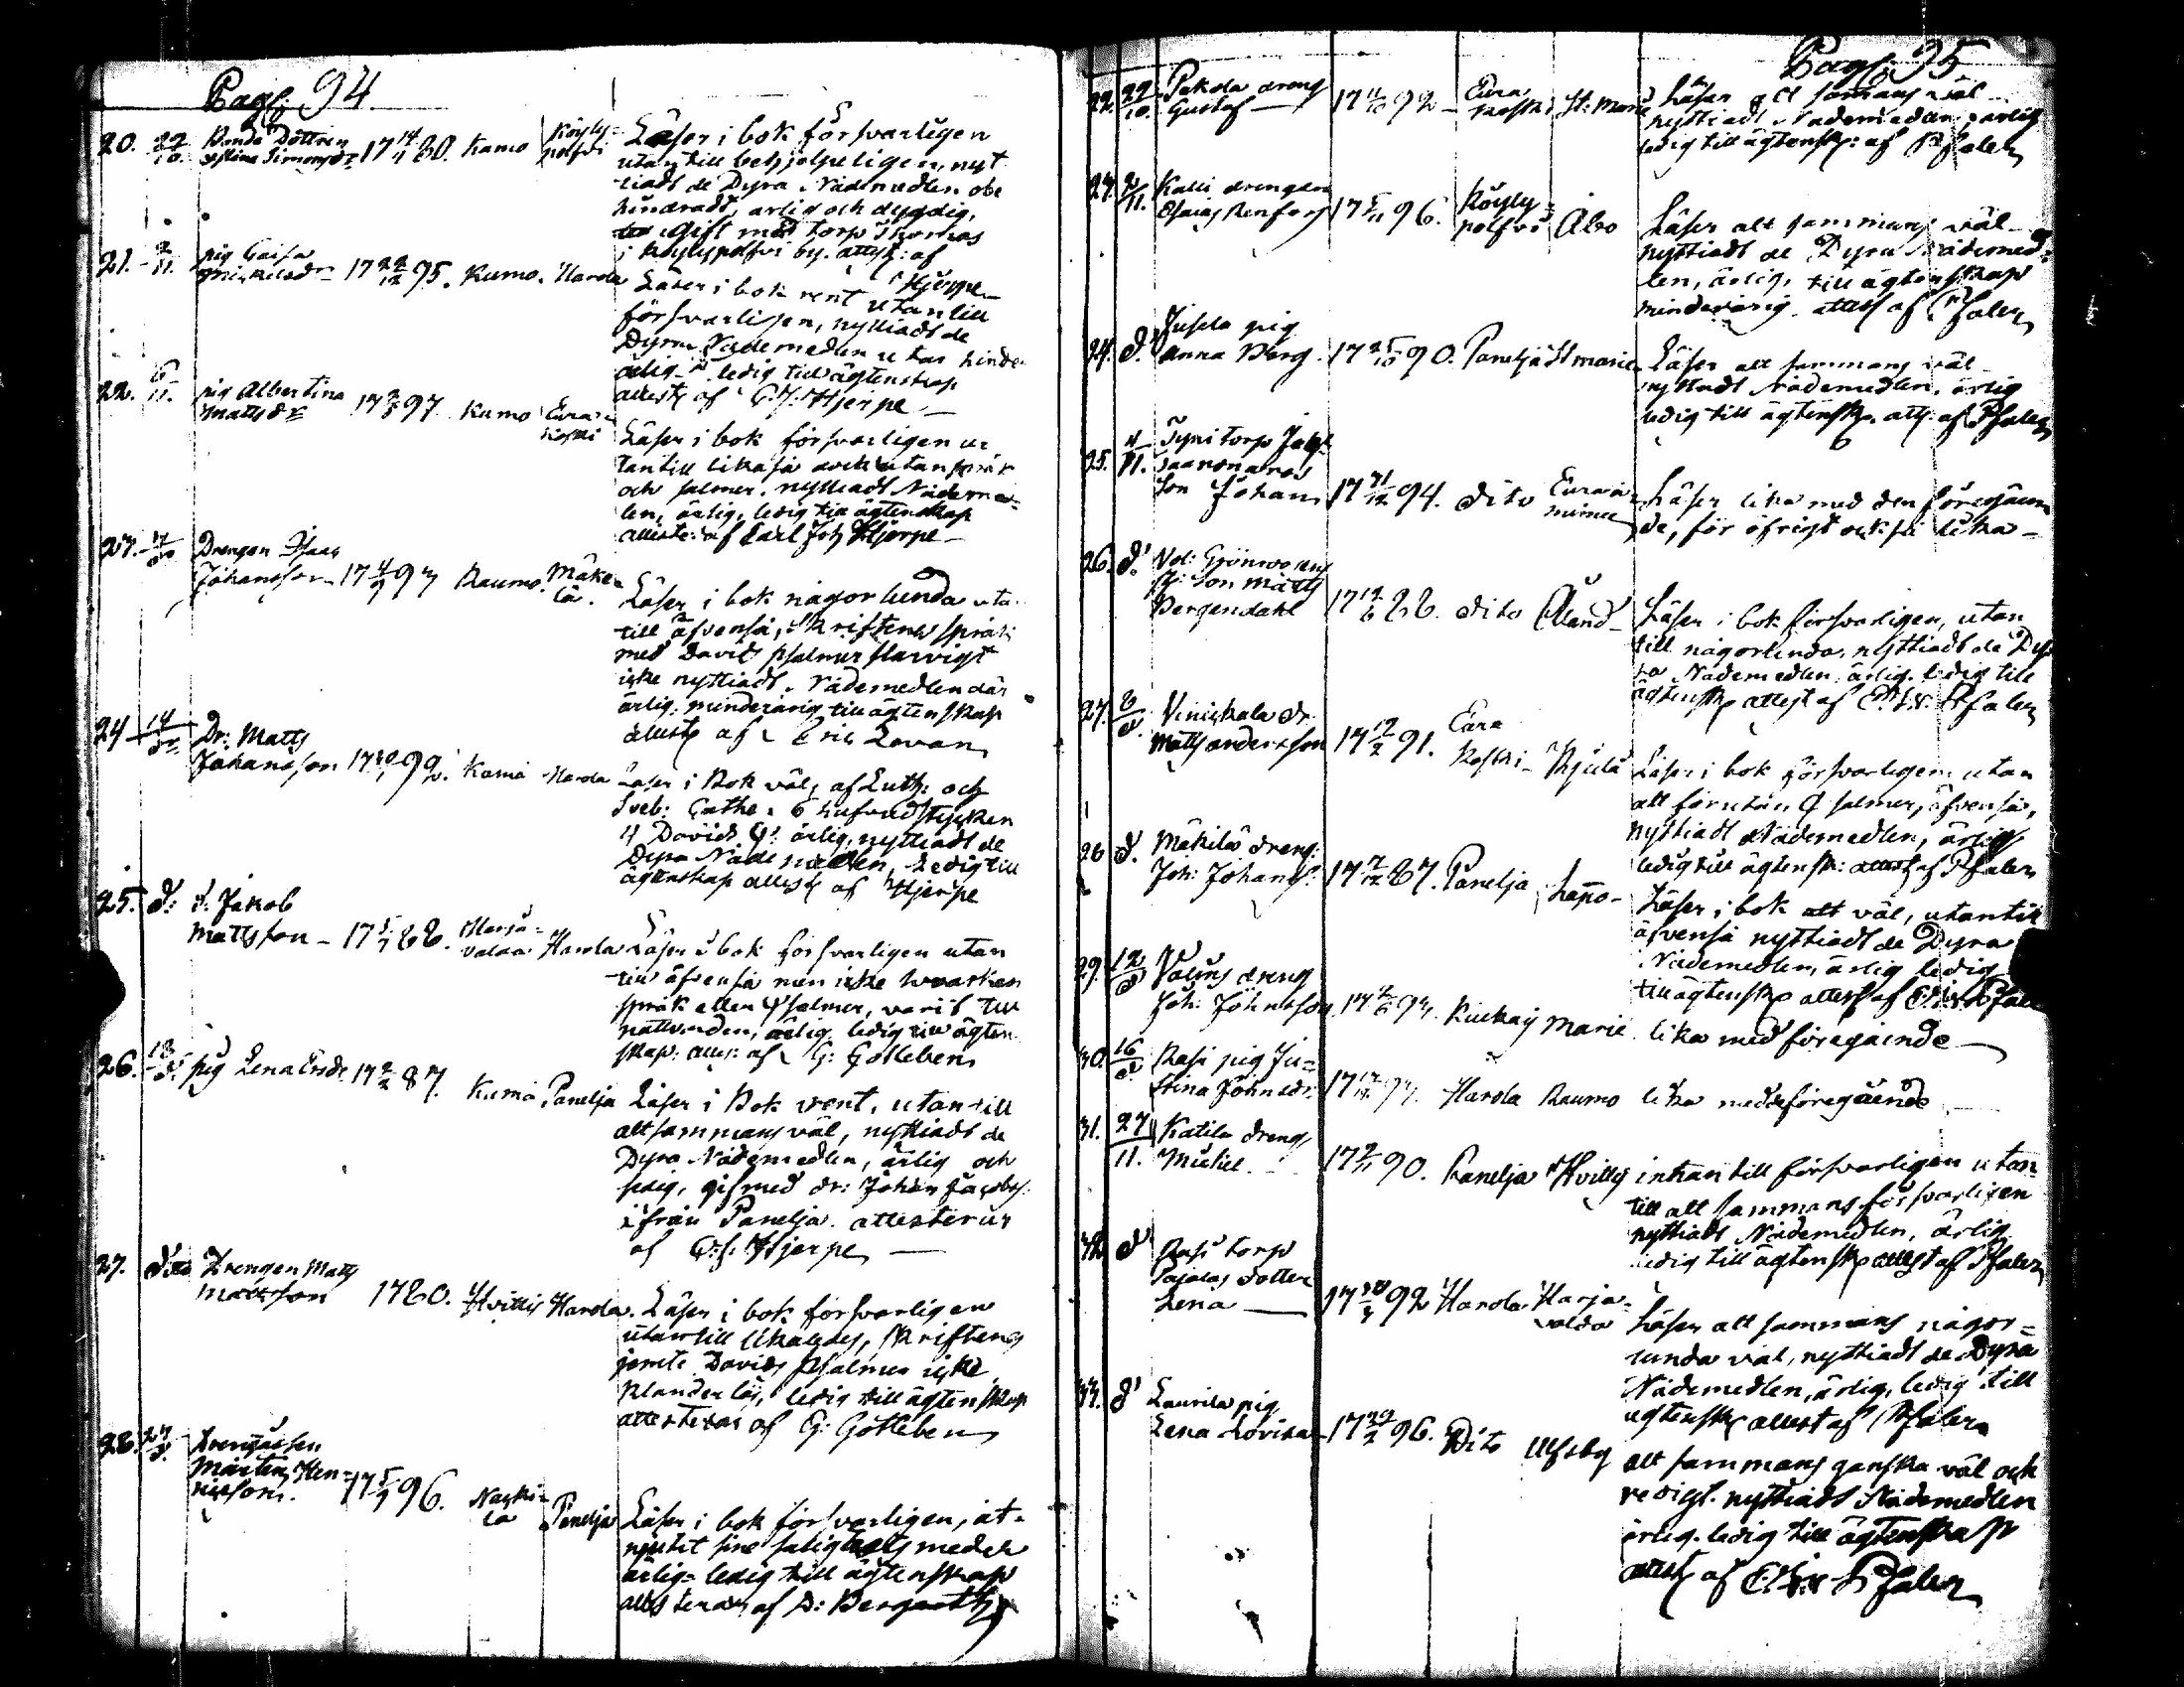 Pag: 94
20. 22/10. Bonde Döttren
Stina Simonsdr 17 14/1 80. Kumo Köyly=
polfvi
Läser i bok försvarligen
utan till behjelpeligen, nyt
tiadt de Dyra Nådemedlen obe
hindradt, ärlig och dygdig,
Gift med torp Thomas
i Köylypolfvi by. attest: af
Hjerpe
21. 2/11. pig Caisa
Mickelsdr 17 22/12 95. Kumo. Harola
Läser i bok rent utan till
försvarligen, nyttiadt de
Dyra Nådemedlen utan hinder
ärlig ledig till ägtenskap
attest af C J: Hjerpe
22. 6/11. pig Albertina
Mattsdr 17 97. Kumo Eura
Koski
Läser i bok försvarligen u
tan till lika så och utan språk
och psalmer. nyttiadt Nådemed=
len, ärlig, ledig till ägtenskap
atteste: af Carl Joh Hjerpe
23. Drengen Isaac
Johansson 17 97 Raumo. Mäke=
lä.
Läser i bok någorlunda uta
till äfvenså, Skriftens språk
med Davids psalmer slarvigt
icke nyttiadt Nådemedlen där
ärlig, minderårig till ägtenskap
attest af Eric Levan
24 14/d: Dr: Matts
Johansson 17 99. Kumå Harola
Läser i Bok väl, af Luth: och
Sveb: Cathe: 6 hufvudstycken
4 Davids Ps: ärlig, nyttiadt de
Dyra Nåde medlen, Ledig till
ägtenskap attest af Hjerpe
25. d: d. Jakob
Mattsson 17 88. Harja=
valda Harola
Läser i bok försvarligen utan
till äfvenså men icke hvarken
språk eller Psalmer, varit till
nattvarden, ärlig, ledig till ägten
skap: attest: af G: Gotleben
26. 18/d. pig Lena Ersdr. 17 2/2 87. Kumå Panelja
Läser i Bok rent, utan till
alt sammans väl, nyttiadt de
Dyra Nådemedlen, ärlig och
gift med dr: Johan Jacobs:
ifrån Panelja. attesterar
af C: J: Hjerpe
27. dito Drengen Matts
Mattsson 1780. Hvittis Harola.
Läser i bok försvarligen
utan till likaledes, Skriftens
jemte Davids psalmer icke
klanderlös, ledig till ägtenskap
attesteras af G: Gotleben
28. 27/d. Drengassen
Mårten Hen=
ricsson. 17 5/1 96. Nacki=
la Penelja
Läser i bok försvarligen, åt=
njutit sine salighets medel
ärlig ledig till ägtenskap
attesteras af D: Bergroth
Pag: 95
22. 29/10. Pakola dreng
Gustaf 17 92 Eura
Koski St: Marie
Läser alt sammans väl
nyttiadt Nådemedlen ärlig
ledig till ägtensk: af Pfaler
23. 2/11. Kalli drengen
Esaias Renfors 17 5/11 96. Köyly=
polfvi Åbo
Läser alt sammans väl
nyttiadt de Dyra Nådemed=
len, ärlig, till ägtenskap
minderårig. attest af Pfaler
24. d. Jusela pig
Anna Berg. 17 25/10 90. Panelja St marie
Läser alt sammans väl
nyttiadt Nådemedlen. ärlig
ledig till ägtensk. att: af Pfaler
25. 4/11. torp Jak:
son Johan 17 31/12 94. dito Eura
Läser lika med den föregåen
de, för öfrigt också lika
26. d:
son Matts
Bergendahl 17 88. dito Åland
Läser i bok försvarligen, utan
till någorlunda. nyttiadt de Dy
ra Nådemedlen ärlig. ledig till
ägtensk attest af Pfaler
27. 8/d. Viniskala dr
Matts andersson 17 12/2 91. Eura
Koski Kjula
Läser i bok försvarligen utan
att förutan, Psalmer, äfvenså,
nyttiadt Nådemedlen, ärlig
ledig till ägtensk: attest af Pfaler
28 d. Mäkilä dreng
Joh: Johans: 17 87. Panelja Lappo
Läser i bok alt väl, utan till
äfvenså nyttiadt de Dyra
Nådemedlen, ärlig ledig
till ägtensk attest af Pfaler
29. 12/d dreng
Joh: Johnsson Marie. lika med föregående
30. 16/d Rasi pig Ju=
stina Johnsdr. Harola Raumo lika med föregående
31. 27/11. Katila dreng
Mickel 17 2/11 90. Panelja Hvittis
innan till försvarligen utan
till alt sammans försvarligen
nyttiadt Nådemedlen, ärlig
ledig till ägtensk attest af Pfaler
32. d Rasi torp
dotter
Lena 17 92 Harola Harja=
valda
Läser alt sammans någor=
lunda väl, nyttiadt de Dyra
Nådemedlen, ärlig, ledig till
ägtensk attest af Pfaler
33. d Laurila pig
Lena Lovisa 17 96. Dito Ulfsby
alt sammans ganska väl och
redigt. nyttiadt Nådemedlen
ärlig. ledig till ägtenskap
attest af Pfaler